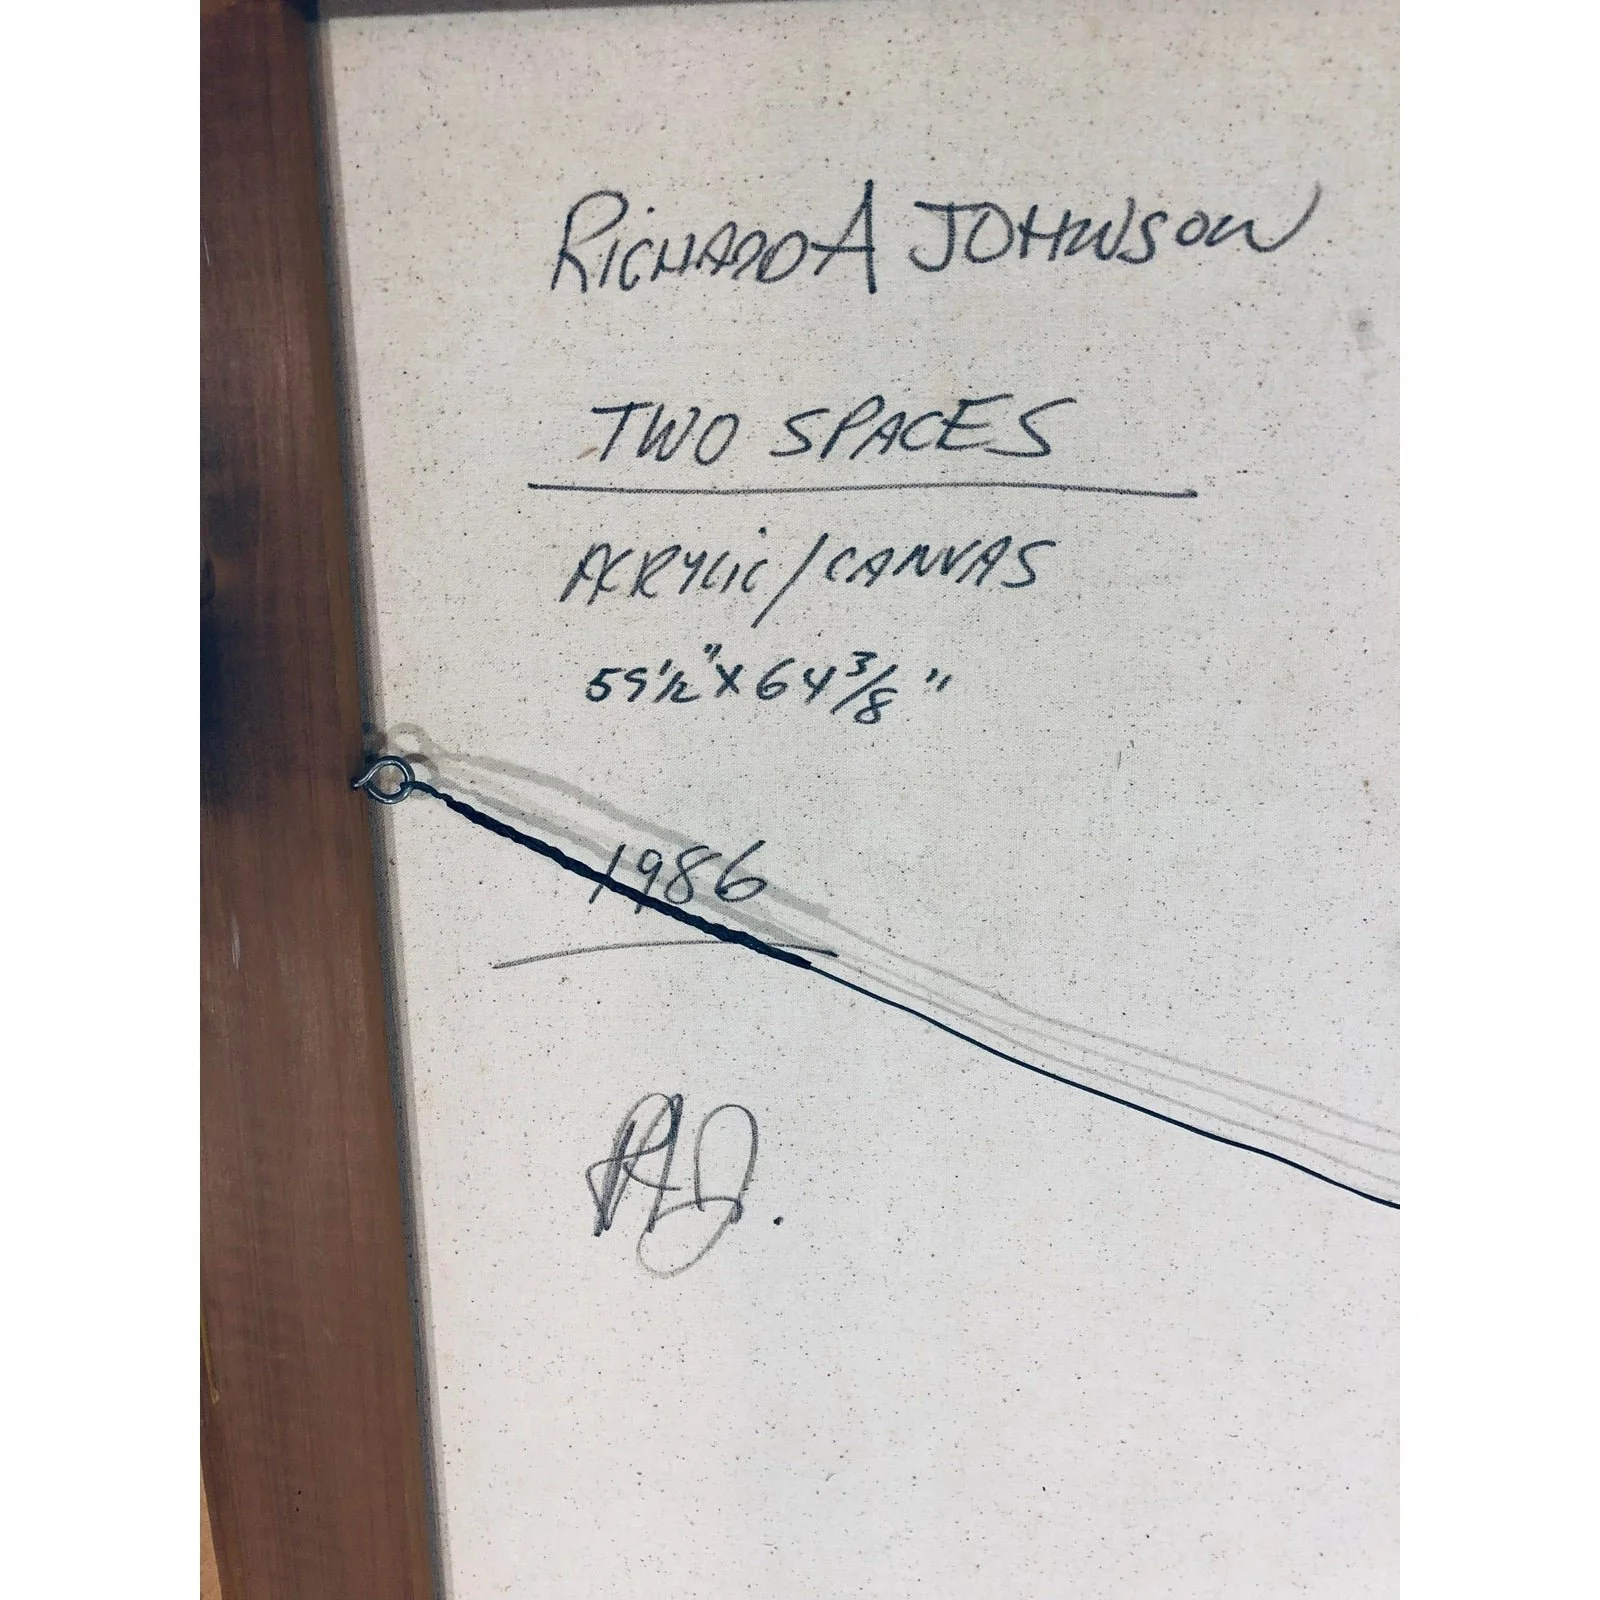 RICHARD A JOHNSON
TWO SPACES
ACRYLIC/CANVAS
59 1/2" X 64 3/8"
1986
RAJ.